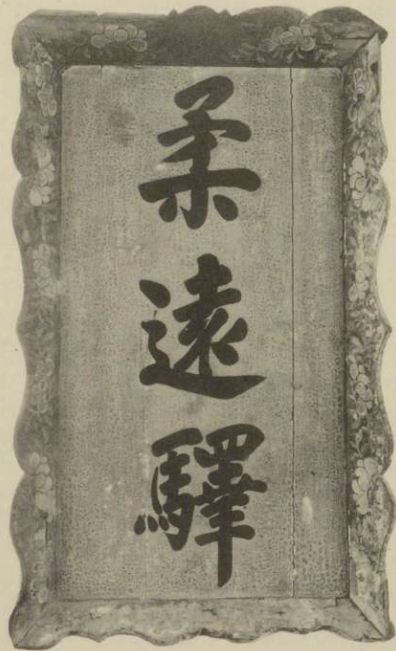 柔遠驛